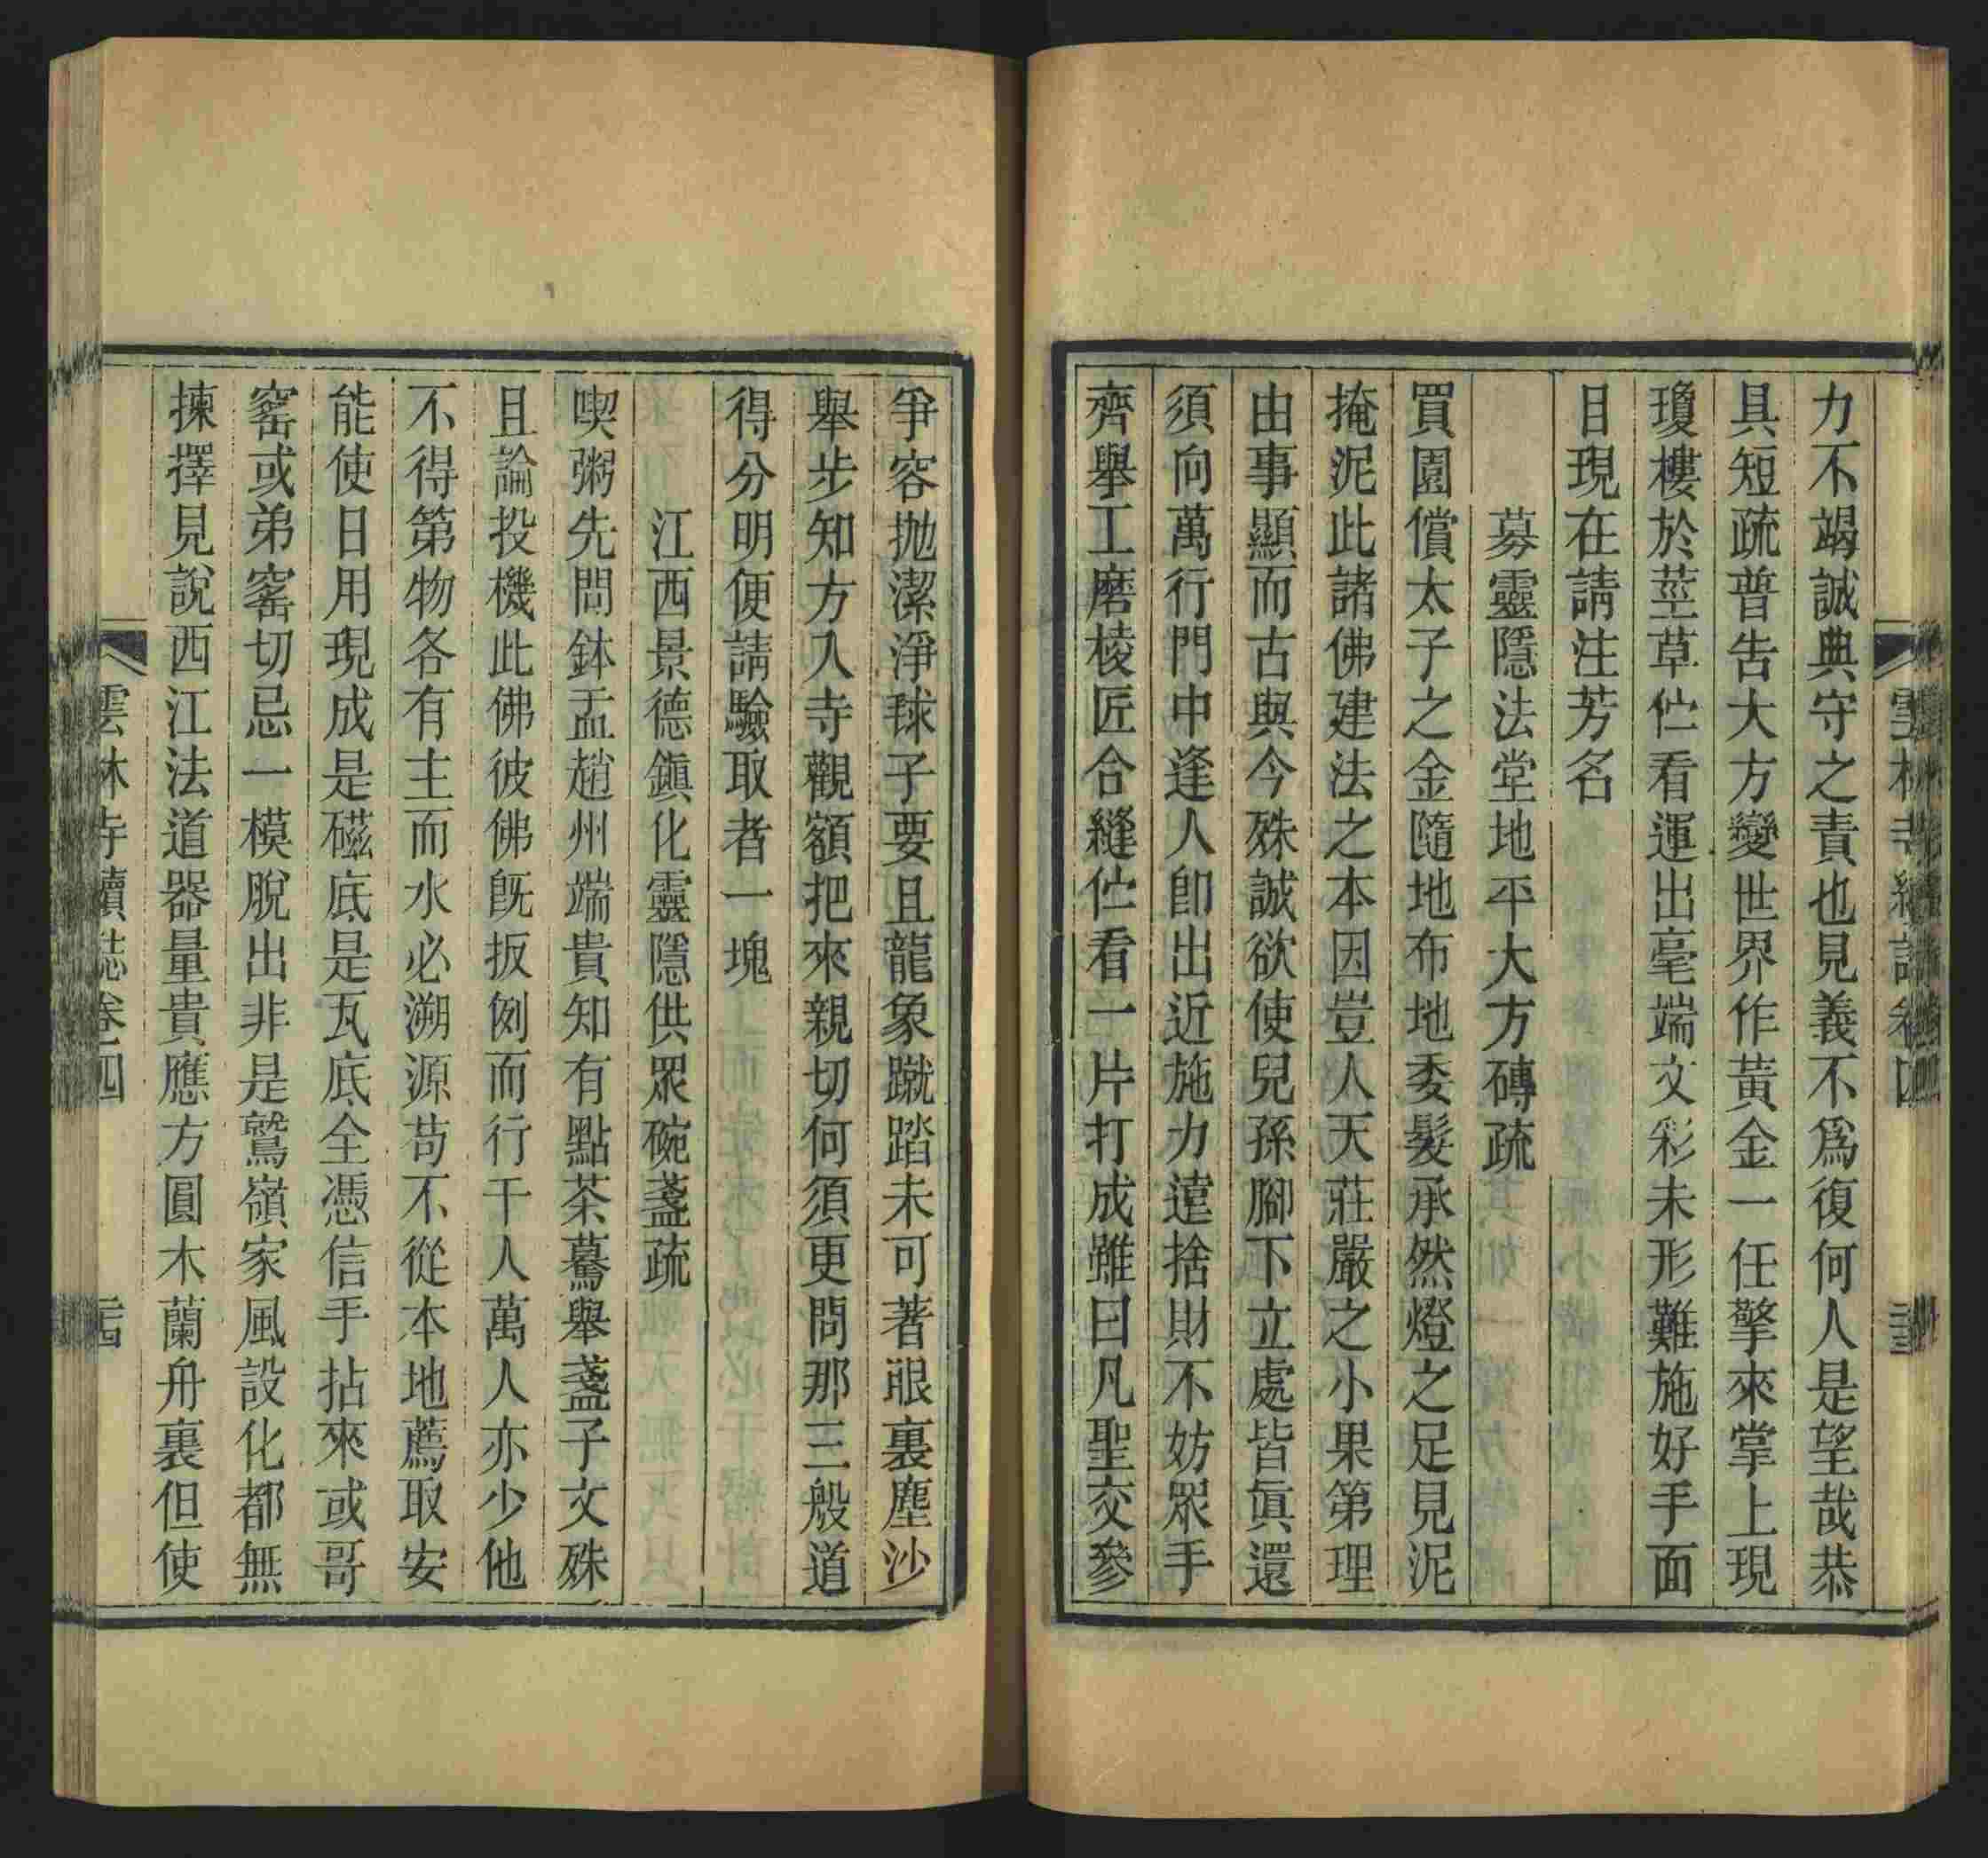 力不竭誠典守之責也見義不爲復何人是望哉恭
具短疏普吿大方變世界作黃金一任擎來掌上現
瓊樓於莖草伫看運出毫端文彩未形難施好手面
目現在請注芳名
募靈隱法堂地平大方磚疏
買園償太子之金隨地布地委髮承然燈之足見泥
掩泥此諸佛建法之本因豈人天莊嚴之小果第理
由事顯而古與今殊誠欲使兒孫腳下立處皆眞還
須向萬行門中逢人卽出近施力遠捨財不妨眾手
齊舉工磨棱匠合縫伫看一片打成雖曰凡聖交參
爭容拋潔淨毬子要且龍象蹴踏未可著眼裏塵沙
舉步知方入寺觀額把來親切何須更問那三般道
得分明便請驗取者一塊
江西景德鎭化靈隱供眾碗盞疏
喫粥先問鉢盂趙州端貴知有點茶驀舉盞子文殊
且論投機此佛彼佛旣扳例而行千人萬人亦少他
不得第物各有主而水必溯源苟不從本地薦取安
能使日用現成是磁底是瓦底全憑信手拈來或哥
窰或弟窰切忌一模脫出非是鷲嶺家風設化都無
揀擇見說西江法道器量貴應方圓木蘭舟裏但使
雲林寺續誌卷四